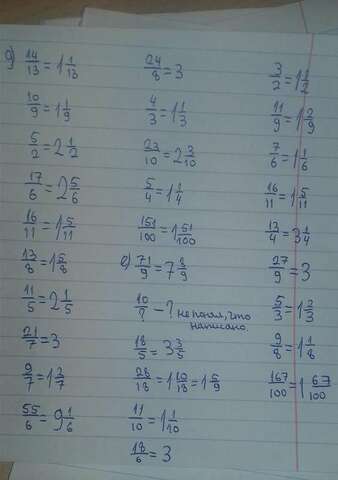 д) 14/13 = 1 1/13
10/9 = 1 1/9
5/2 = 2 1/2
17/6 = 2 5/6
16/11 = 1 5/11
13/8 = 1 5/8
11/5 = 2 1/5
21/7 = 3
9/7 = 1 2/7
55/6 = 9 1/6
24/8 = 3
4/3 = 1 1/3
23/10 = 2 3/10
5/4 = 1 1/4
151/100 = 1 51/100
е) 71/9 = 7 8/9
10/7 - ? не понял, что
написано.
18/5 = 3 3/5
28/18 = 1 10/18 = 1 5/9
11/10 = 1 1/10
18/6 = 3
3/2 = 1 1/2
11/9 = 1 2/9
7/6 = 1 1/6
16/11 = 1 5/11
13/4 = 3 1/4
27/9 = 3
5/3 = 1 2/3
9/8 = 1 1/8
167/100 = 1 67/100